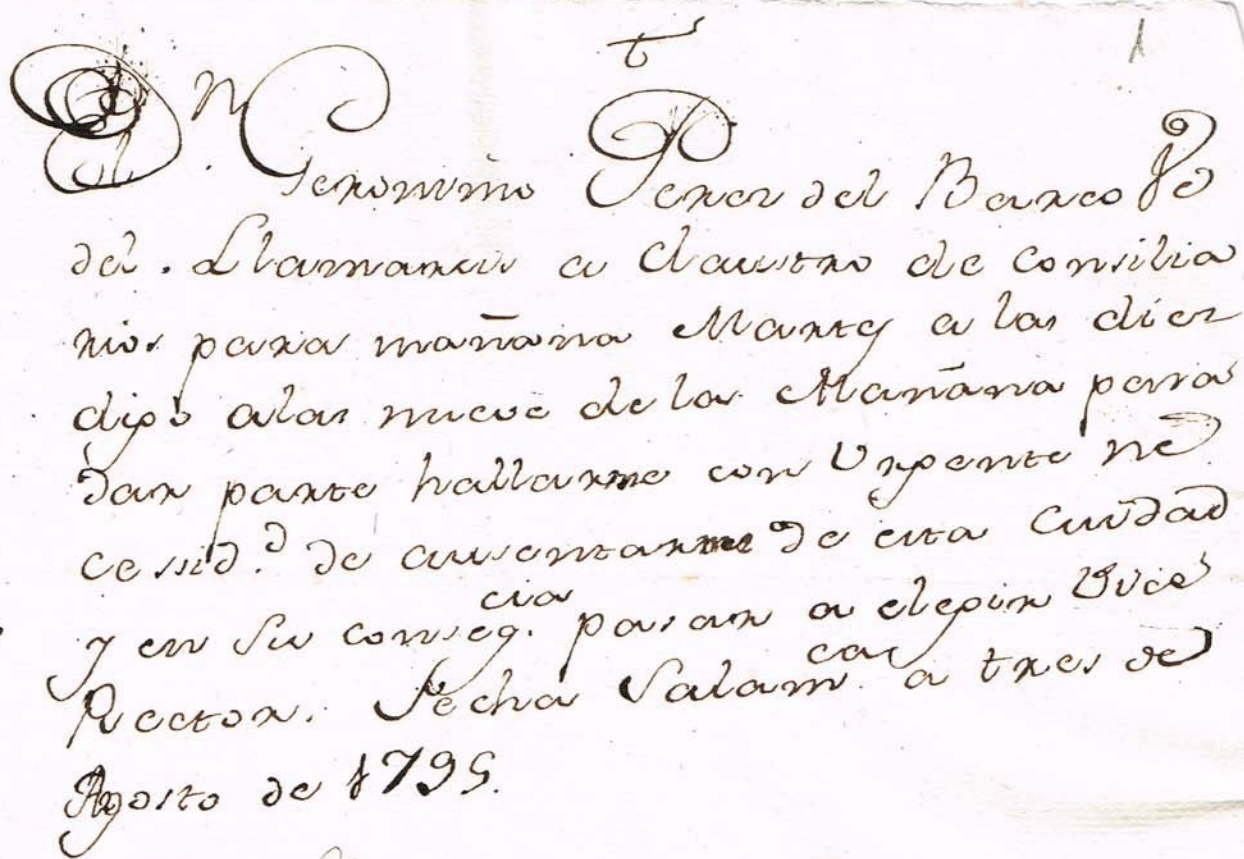 1
D.n Geronimo Perez del Barco Ve
del. Llamareis a Claustro de Consilia
rios para mañana Martes a las diez
digo alas nueve de la Mañana para
dar parte hallarme con Urgente ne
cesid.d de ausentarme de esta Ciudad
y en su conseq.cia pasar a elegir Vice
Rector. Fecha Salam.ca a tres de
Agosto de 1795.